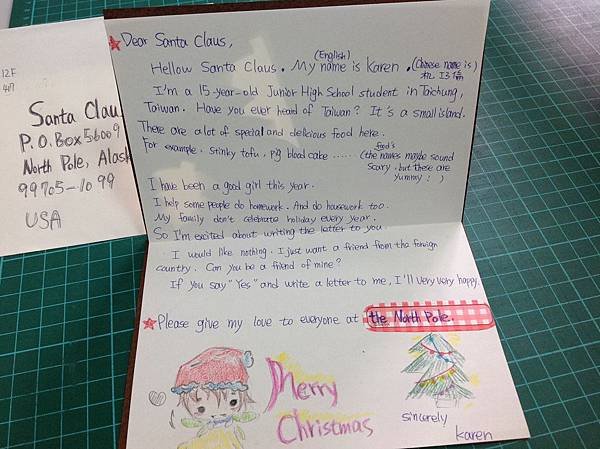 12F
Santa Claus
P.O. Box 56009
North Pole, Alask
99705-1099
USA
Dear Santa Claus,
(English)
Hellow Santa Claus. My name is Karen. (Chinese name is)
I'm a 15-year-old Junior High School student in Taichung,
Taiwan. Have you ever heard of Taiwan? It's a small island.
There are a lot of special and delicious food here.
food's
For example. Stinky tofu, pig blood cake ...... (the names maybe sound
scary, but these are
yummy :)
I have been a good girl this year.
I help some people do homework. And do housework too.
My family don't celebrate holiday every year.
So I'm excited about writing the letter to you
I would like nothing. I just want a friend from the foreign
country. Can you be a friend of mine?
If you say "Yes" and write a letter to me, I'll very very happy.
Please give my love to everyone at the North Pole.
Merry
Christmas
sincerely
karen